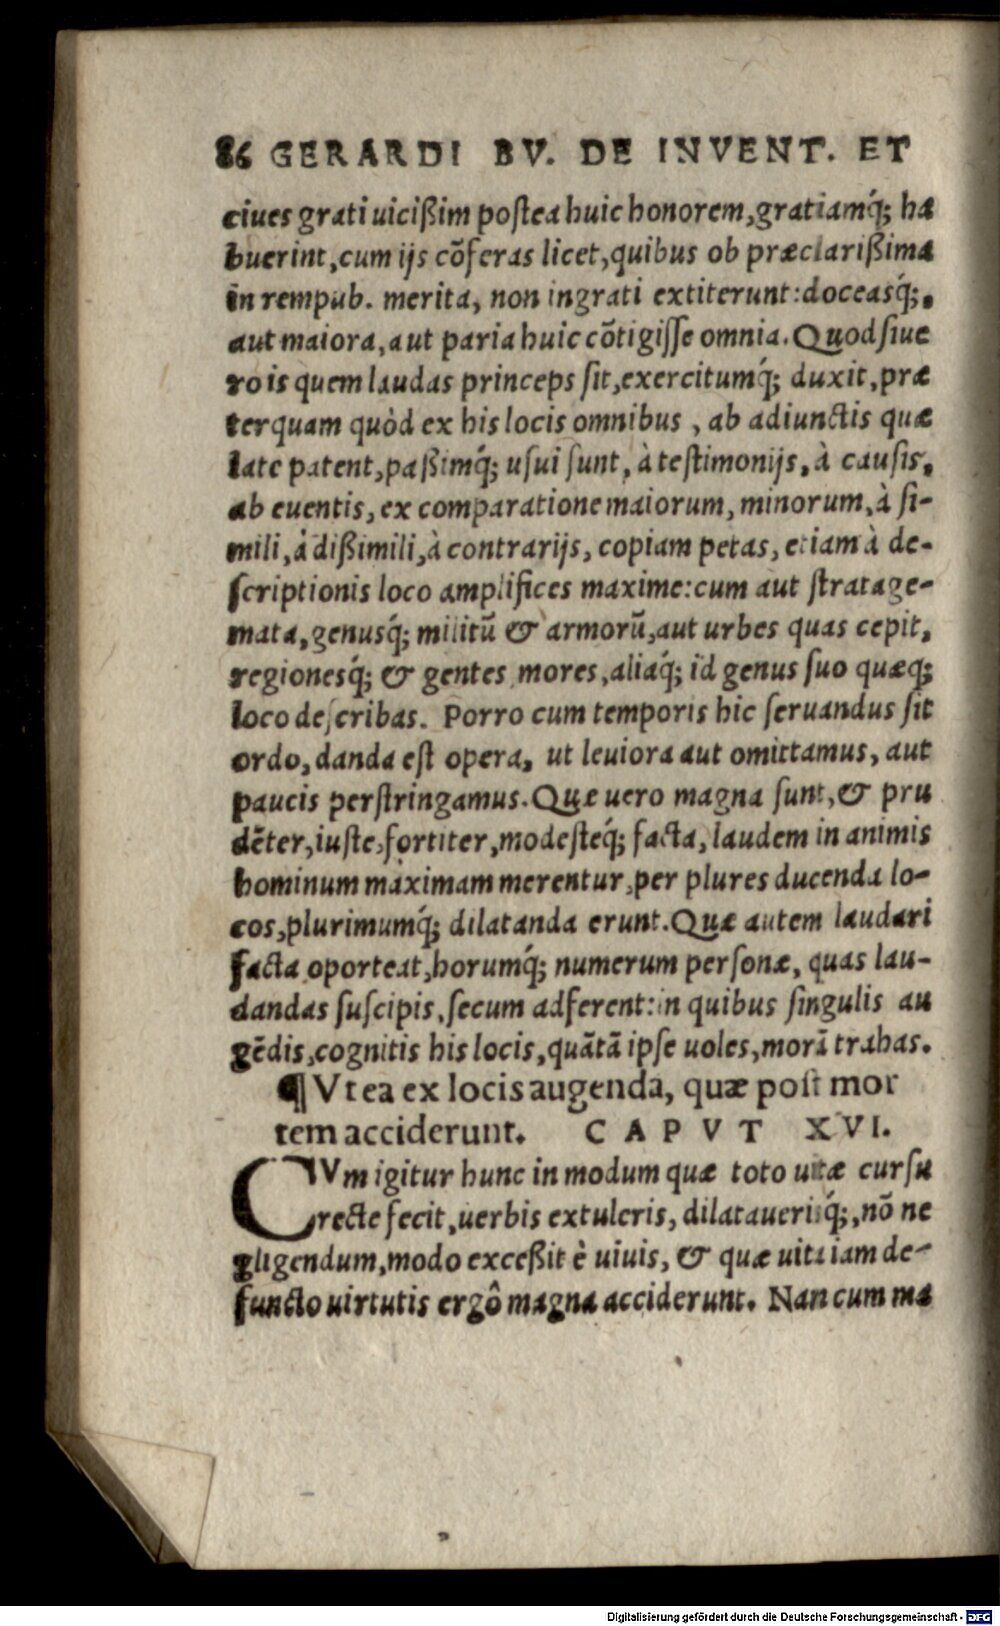 86 GERARDI BV. DE INVENT. ET
ciues grati uicißim postea huic honorem, gratiamq́; ha
buerint, cum ijs cõferas licet, quibus ob præclarißima
in rempub. merita, non ingrati extiterunt: doceasq́;,
aut maiora, aut paria huic cõtigisse omnia. Quod si ue
ro is quem laudas princeps sit, exercitumq́; duxit, præ
terquam quòd ex his locis omnibus, ab adiunctis quæ
late patent, paßimq́; usui sunt, à testimonijs, à causis,
ab euentis, ex comparatione maiorum, minorum, à si-
mili, à dißimili, à contrarijs, copiam petas, etiam à de-
scriptionis loco amplifices maxime: cum aut stratage-
mata, genusq́; militũ & armorũ, aut urbes quas cepit,
regionesq́; & gentes mores, aliaq́; id genus suo quæq;
loco describas. Porro cum temporis hic seruandus sit
ordo, danda est opera, ut leuiora aut omittamus, aut
paucis perstringamus. Quæ uero magna sunt, & pru
dẽter, iuste, fortiter, modesteq́; facta, laudem in animis
hominum maximam merentur, per plures ducenda lo-
cos, plurimumq́; dilatanda erunt. Quæ autem laudari
facta oporteat, horumq́; numerum personæ, quas lau-
dandas suscipis, secum adferent: in quibus singulis au
gẽdis, cognitis his locis, quãtã ipse uoles, morã trahas.
¶ Vt ea ex locis augenda, quæ post mor
tem acciderunt. CAPVT XVI.
CVm igitur hunc in modum quæ toto uitæ cursu
recte fecit, uerbis extuleris, dilataueriśq́;, nõ ne
gligendum, modo exceßit è uiuis, & quæ uita iam de-
functo uirtutis ergô magna acciderunt. Nan cum ma
Digitalisierung gefördert durch die Deutsche Forschungsgemeinschaft - DFG